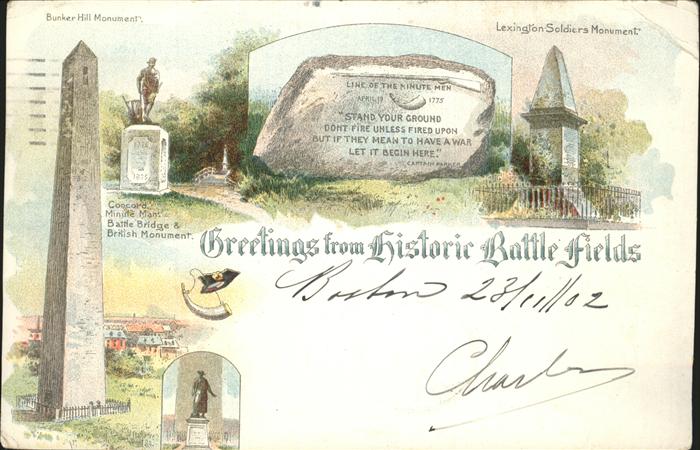 Bunker Hill Monument.
Lexington Soldiers Monument.
LINE OF THE MINUTE MEN
APRIL 19 1775
"STAND YOUR GROUND
DONT FIRE UNLESS FIRED UPON
BUT IF THEY MEAN TO HAVE A WAR
LET IT BEGIN HERE."
CAPTAIN PARKER
1775
Concord
Minute Man.
Battle Bridge &
British Monument.
Greetings from Historic Battle Fields
Boston 23/11/02
Charles